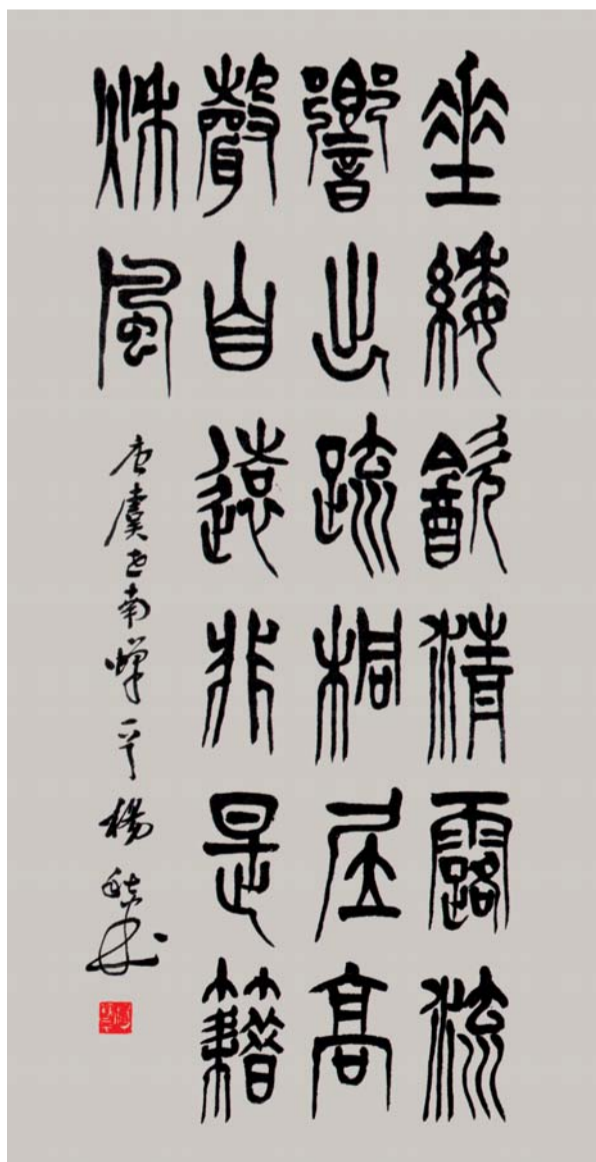 垂緌飲清露流
響出疏桐居高
聲自遠非是籍
秋風
唐虞世南蟬 楊